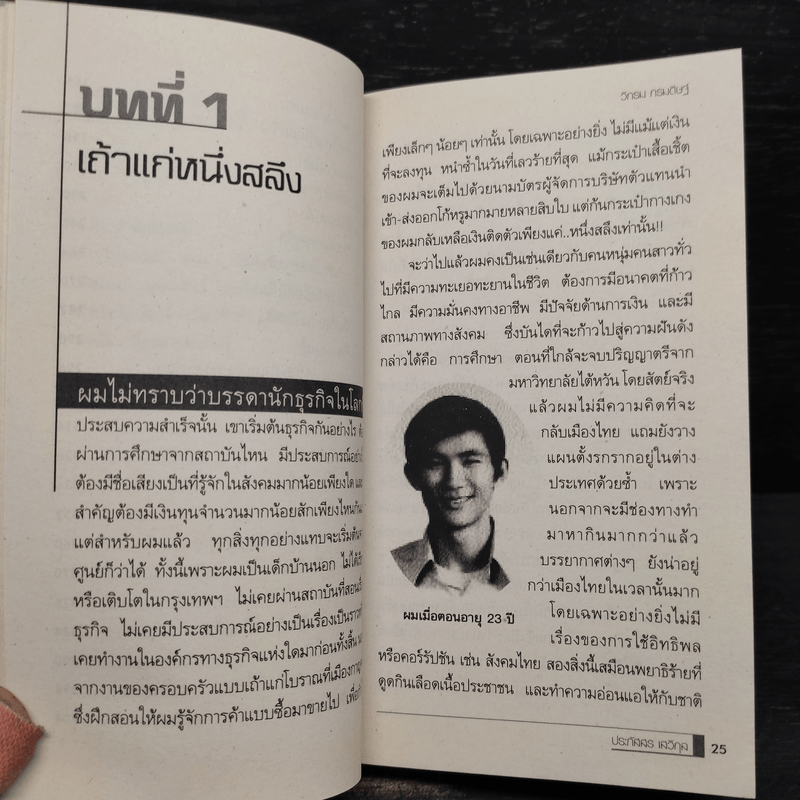 บทที่ 1
เถ้าแก่หนึ่งสลึง
ผมไม่ทราบว่าบรรดานักธุรกิจในโลก
ประสบความสำเร็จนั้น เขาเริ่มต้นธุรกิจกันอย่างไร
ผ่านการศึกษาจากสถาบันไหน มีประสบการณ์อย่าง
ต้องมีชื่อเสียงเป็นที่รู้จักในสังคมมากน้อยเพียงใด และ
สำคัญต้องมีเงินทุนจำนวนมากน้อยสักเพียงไหนกัน
แต่สำหรับผมแล้ว ทุกสิ่งทุกอย่างแทบจะเริ่มต้น
ศูนย์ก็ว่าได้ ทั้งนี้เพราะผมเป็นเด็กบ้านนอก ไม่ได้
หรือเติบโตในกรุงเทพฯ ไม่เคยผ่านสถาบันที่สอน
ธุรกิจ ไม่เคยมีประสบการณ์อย่างเป็นเรื่องเป็นราว
เคยทำงานในองค์กรทางธุรกิจแห่งใดมาก่อนทั้งสิ้น
จากงานของครอบครัวแบบเถ้าแก่โบราณที่เมืองกาญ
ซึ่งฝึกสอนให้ผมรู้จักการค้าแบบซื้อมาขายไป
วิกรม กรมดิษฐ์
เพียงเล็กๆ น้อยๆ เท่านั้น โดยเฉพาะอย่างยิ่ง ไม่มีแม้แต่เงิน
ที่จะลงทุน หนำซ้ำในวันที่เลวร้ายที่สุด แม้กระเป๋าเสื้อเชิ้ต
ของผมจะเต็มไปด้วยนามบัตรผู้จัดการบริษัทตัวแทนนำ
เข้า-ส่งออกโก้หรูมากมายหลายสิบใบ แต่ก้นกระเป๋ากางเกง
ของผมกลับเหลือเงินติดตัวเพียงแค่..หนึ่งสลึงเท่านั้น!!
จะว่าไปแล้วผมคงเป็นเช่นเดียวกับคนหนุ่มคนสาวทั่ว
ไปที่มีความทะเยอทะยานในชีวิต ต้องการมีอนาคตที่ก้าว
ไกล มีความมั่นคงทางอาชีพ มีปัจจัยด้านการเงิน และมี
สถานภาพทางสังคม ซึ่งบันไดที่จะก้าวไปสู่ความฝันดัง
กล่าวได้คือ การศึกษา ตอนที่ใกล้จะจบปริญญาตรีจาก
มหาวิทยาลัยไต้หวัน โดยสัตย์จริง
แล้วผมไม่มีความคิดที่จะ
กลับเมืองไทย แถมยังวาง
แผนตั้งรกรากอยู่ในต่าง
ประเทศด้วยซ้ำ เพราะ
นอกจากจะมีช่องทางทำ
มาหากินมากกว่าแล้ว
บรรยากาศต่างๆ ยังน่าอยู่
กว่าเมืองไทยในเวลานั้นมาก
โดยเฉพาะอย่างยิ่งไม่มี
เรื่องของการใช้อิทธิพล
ผมเมื่อตอนอายุ 23 ปี
หรือคอร์รัปชัน เช่น สังคมไทย สองสิ่งนี้เสมือนพยาธิร้ายที่
ดูดกินเลือดเนื้อประชาชน และทำความอ่อนแอให้กับชาติ
ประภัสสร เสวิกุล 25